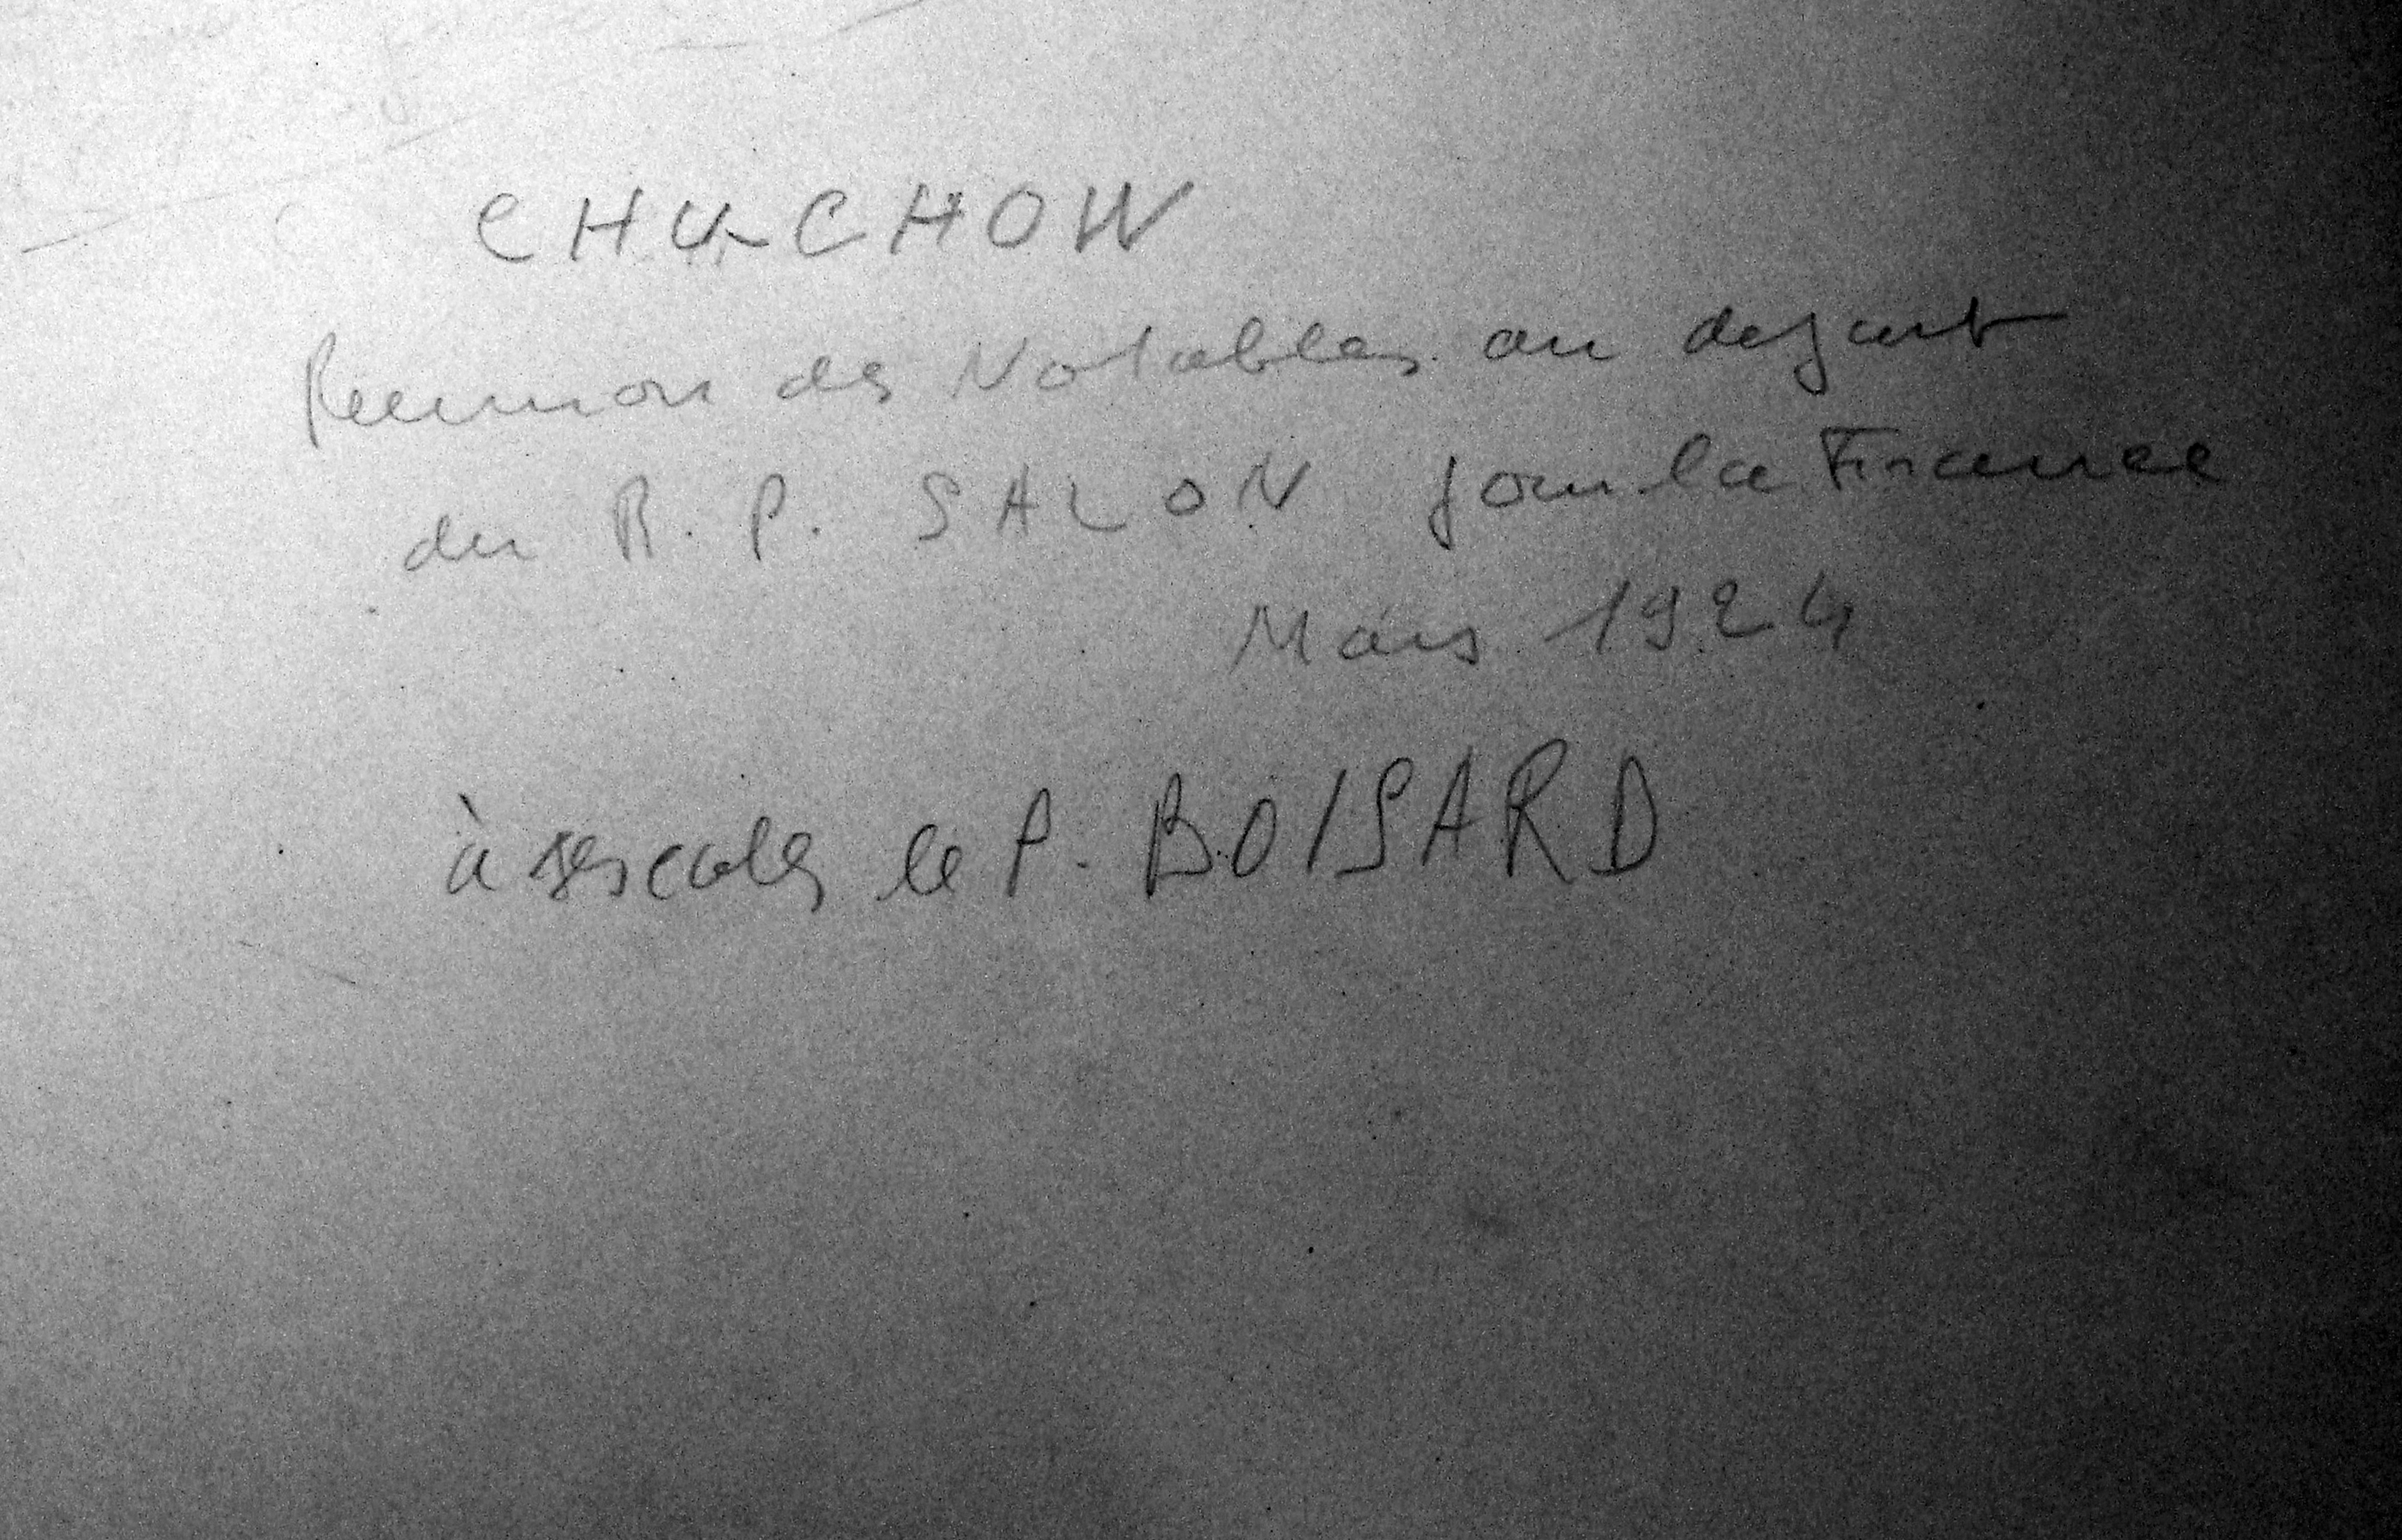 CHU-CHOW
Reunion des Notables au depart
du R. P. SALON pour la France
Mars 1924
à ses cotés le P. BOISARD